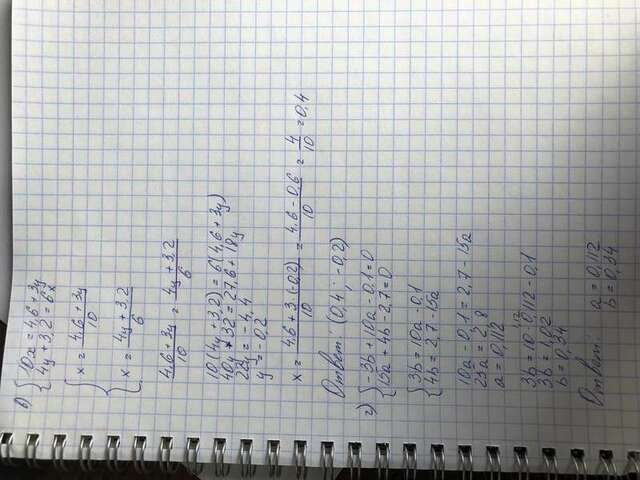 в) { 10x = 4,6 + 3y
4y + 3,2 = 6x
{ x = 4,6 + 3y / 10
x = 4y + 3,2 / 6
4,6 + 3y / 10 = 4y + 3,2 / 6
10(4y + 3,2) = 6(4,6 + 3y)
40y + 32 = 27,6 + 18y
22y = -4,4
y = -0,2
x = 4,6 + 3·(-0,2) / 10 = 4,6 - 0,6 / 10 = 4 / 10 = 0,4
Ответ: (0,4 ; -0,2)
г) { -3b + 10a - 0,1 = 0
15a + 4b - 2,7 = 0
{ 3b = 10a - 0,1
4b = 2,7 - 15a
10a - 0,1 = 2,7 - 15a
25a = 2,8
a = 0,112
3b = 10 · 0,112 - 0,1
3b = 1,02
b = 0,34
Ответ: a = 0,112
b = 0,34